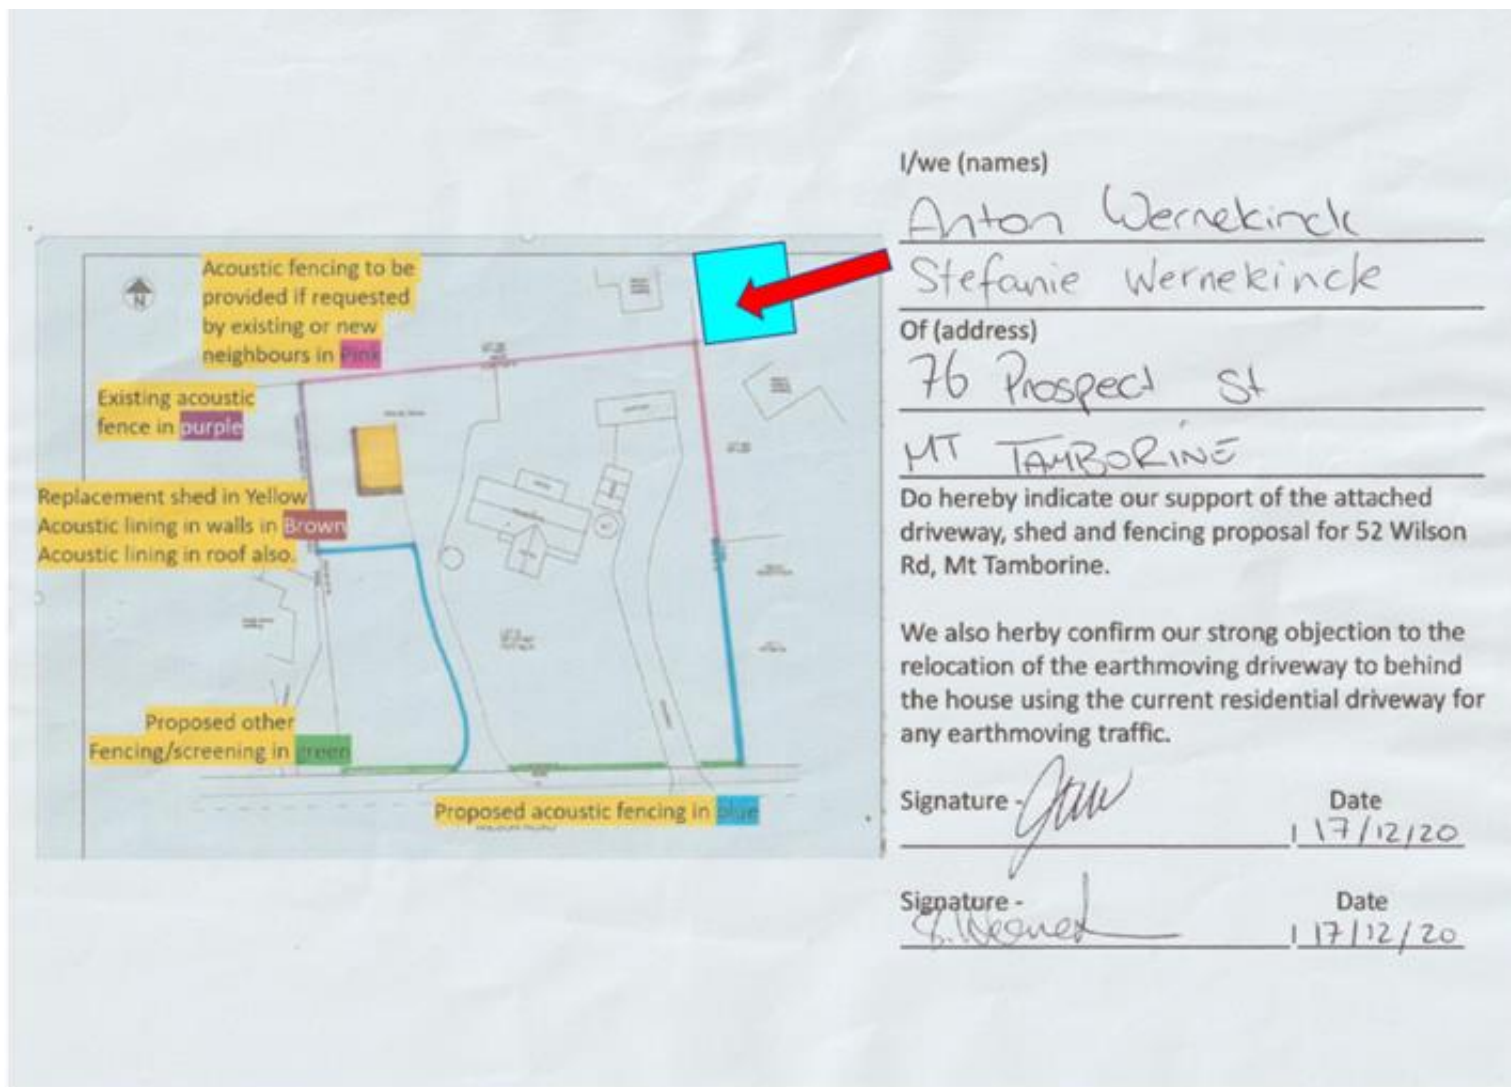 Acoustic fencing to be
provided if requested
by existing or new
neighbours in Pink
Existing acoustic
fence in purple
Replacement shed in Yellow
Acoustic lining in walls in Brown
Acoustic lining in roof also.
Proposed other
Fencing/screening in green
Proposed acoustic fencing in blue
N
I/we (names)
Anton Wernekinck
Stefanie Wernekinck
Of (address)
76 Prospect St
MT TAMBORINE
Do hereby indicate our support of the attached
driveway, shed and fencing proposal for 52 Wilson
Rd, Mt Tamborine.
We also herby confirm our strong objection to the
relocation of the earthmoving driveway to behind
the house using the current residential driveway for
any earthmoving traffic.
Signature - Date
17/12/20
Signature - Date
17/12/20